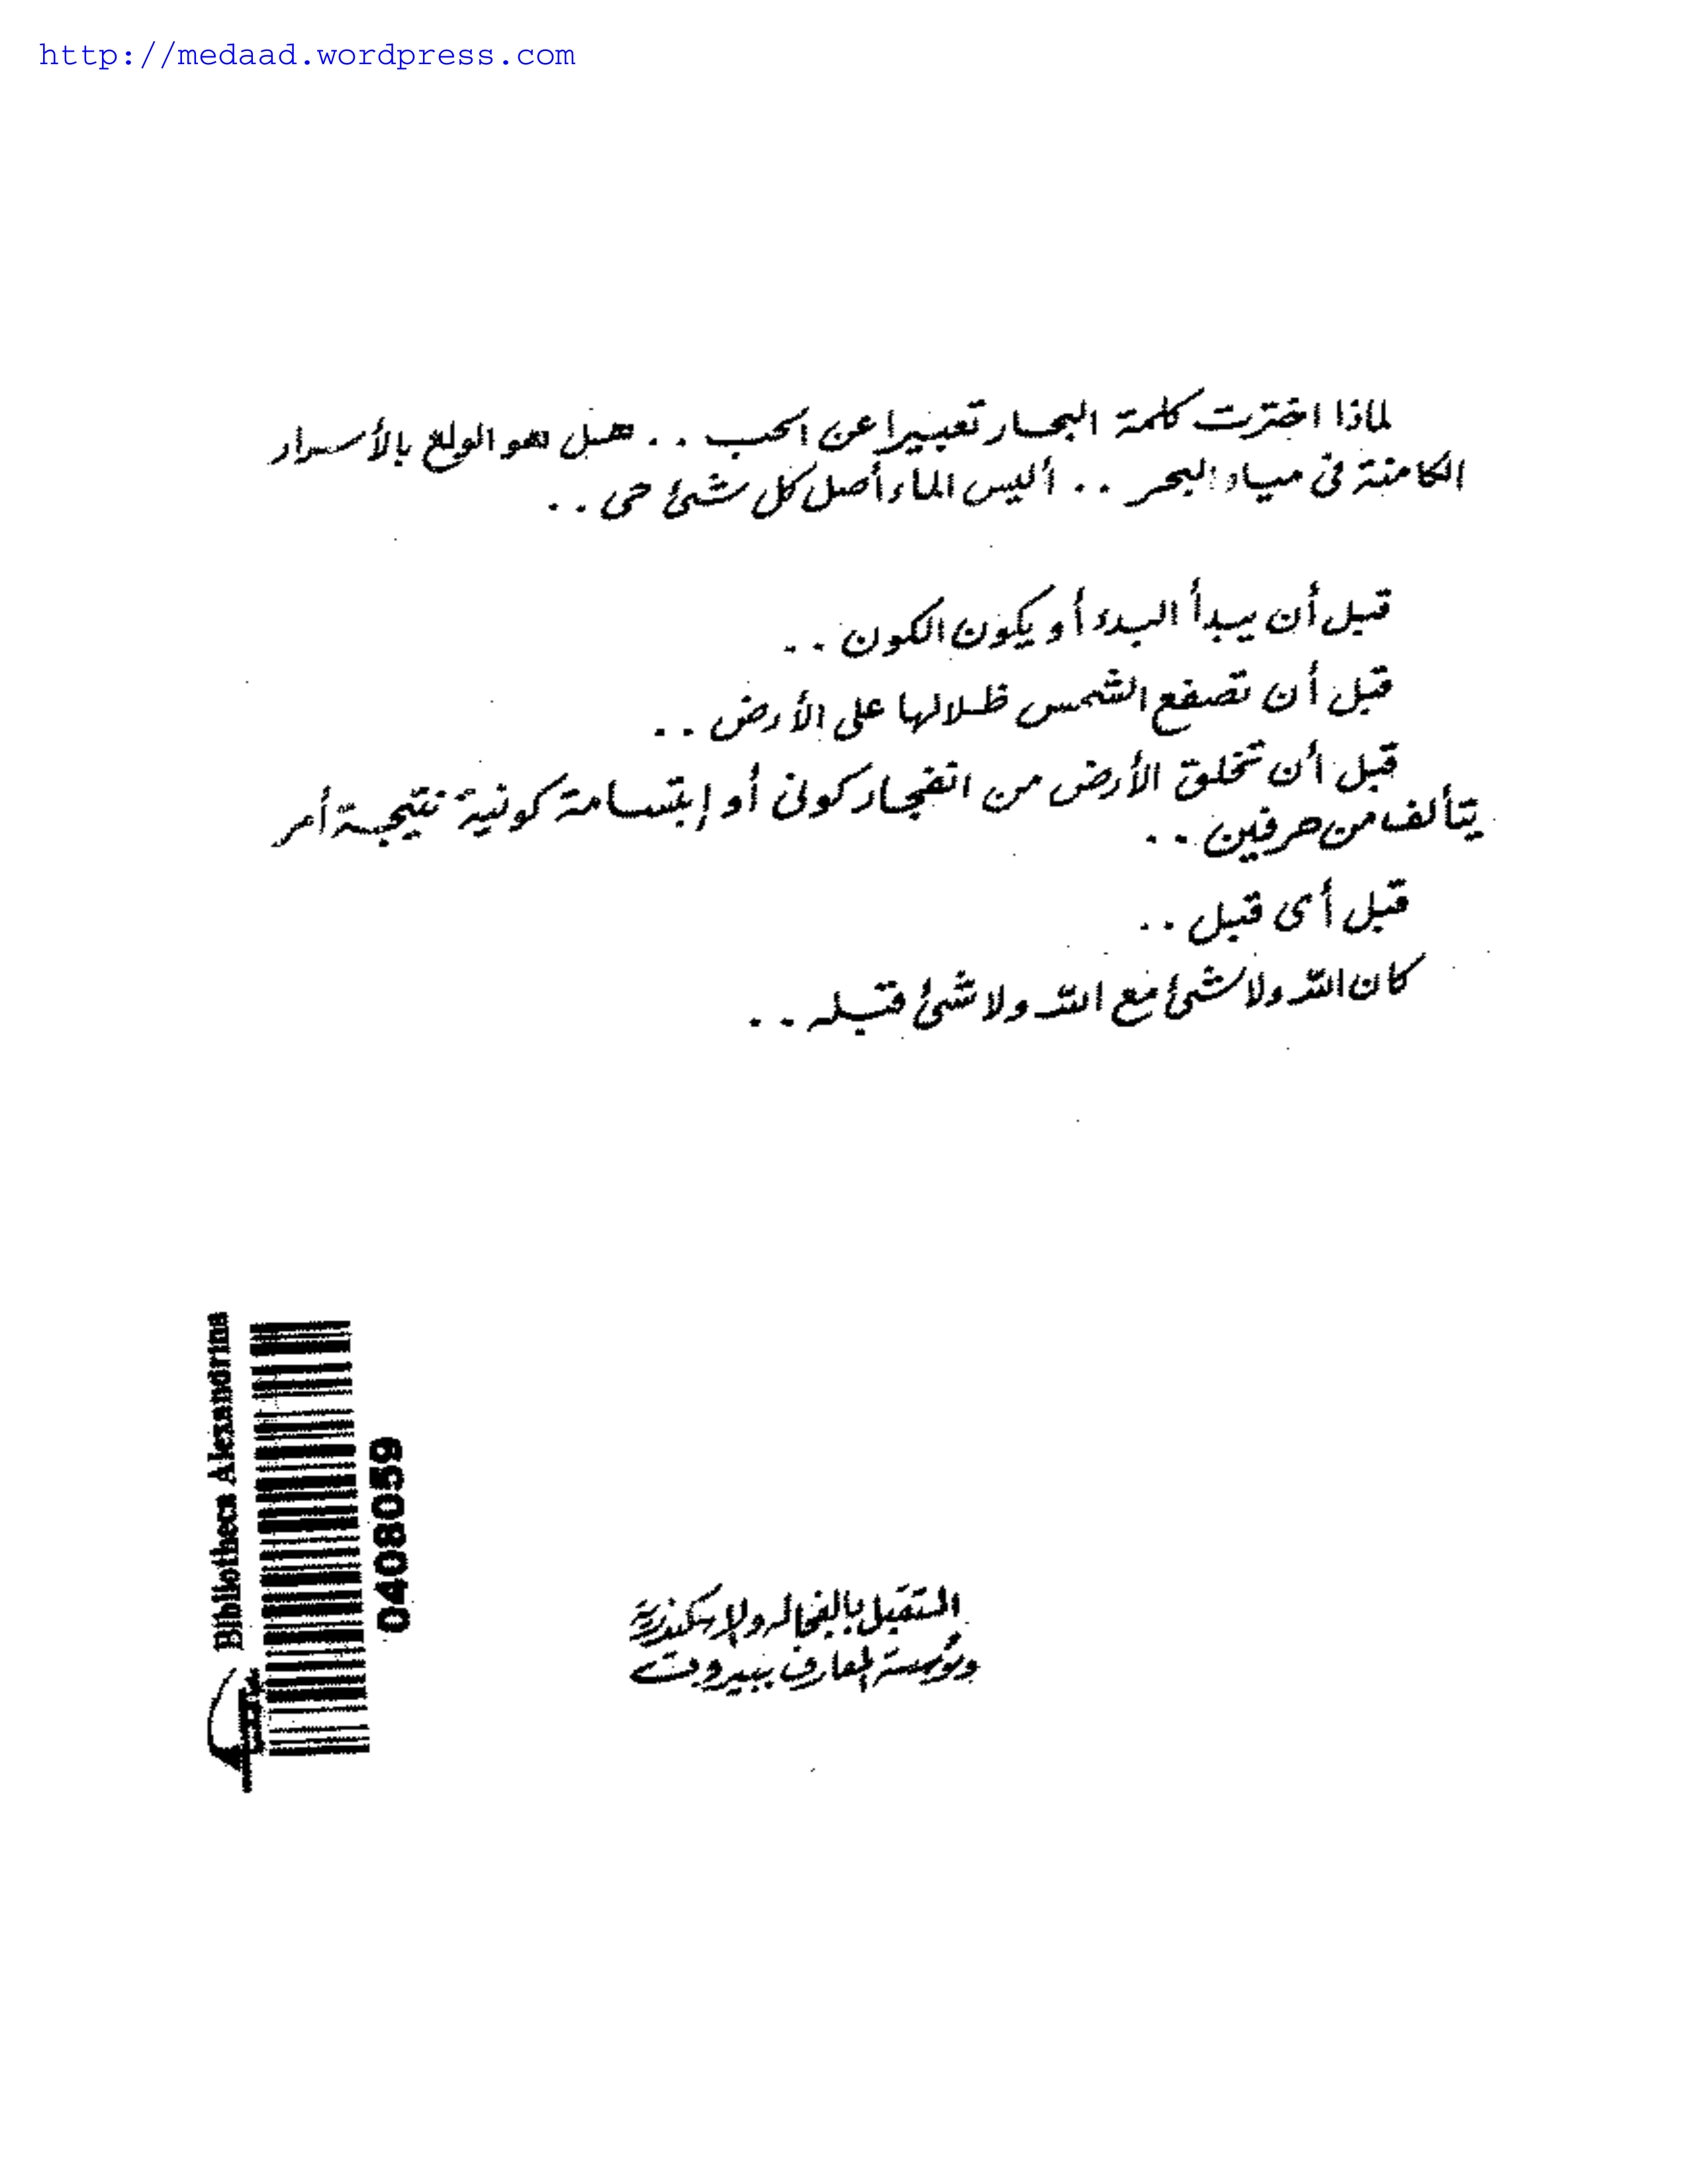 http://medaad.wordpress.com
لماذا اخترت كلمة البحار تعبيرا عن الحب .. هل هو الولع بالأسرار
الكامنة فى مياه البحر .. أليس الماء أصل كل شئ حى ..
قبل أن يبدأ البدء أو يكون الكون ..
قبل أن تصفع الشمس ظلالها على الأرض ..
قبل أن تخلق الأرض من انفجار كونى أو إبتسامة كونية نتيجة أمر
يتألف من حرفين ..
قبل أى قبل ..
كان الله ولا شئ مع الله ولا شئ قبله ..
Bibliotheca Alexandrina
0408059
المستقبل بالفجالة والإسكندرية
ومؤسسة المعارف ببيروت